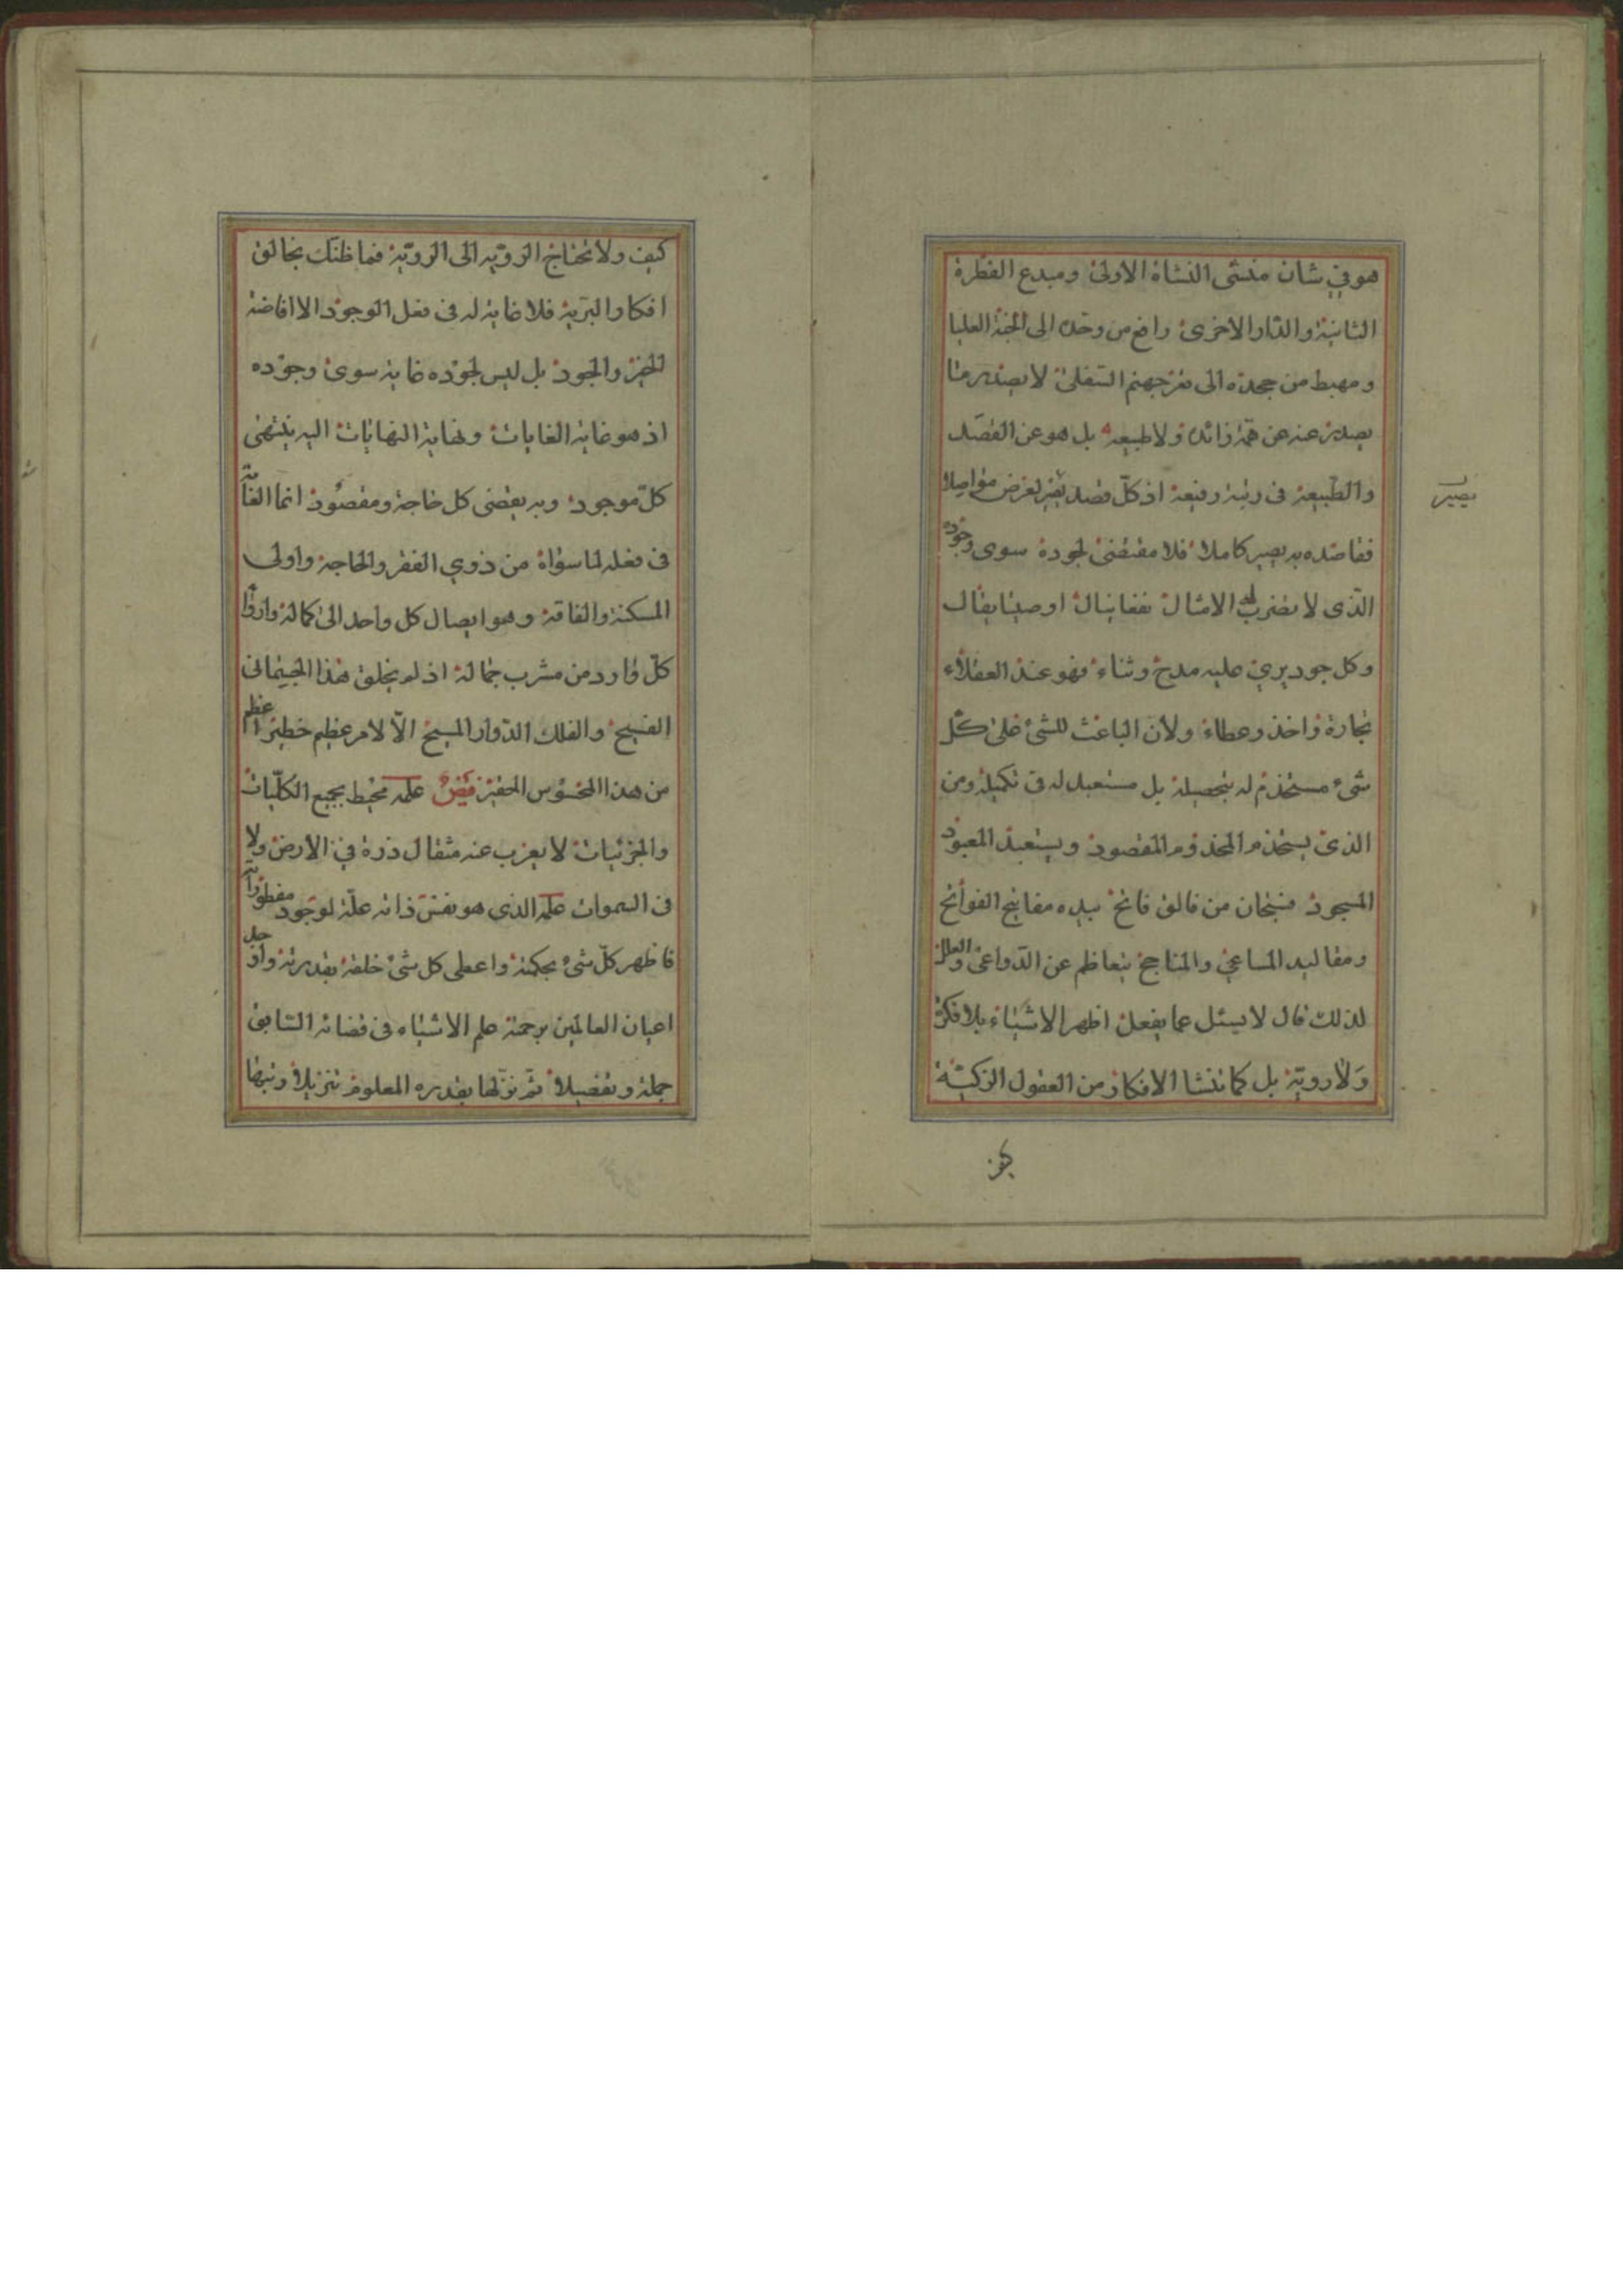 هو في شان منشی النشاة الاولی ومبدع الفطرة
الثانیة والدار الاخری رافع من وحده الی الجنة العلیا
ومهبط من جحده الی قعر جهنم السفلی لا یصدر ما
یصدر عنه عن همة زائدة ولا طبیعة بل هو عن القصد
والطبیعة فی رتبة رفیعة اذ کل قصد یقیر لغرض مواصلا
یصیر
فقاصده به یصیر کاملا فلا مقتضی لجوده سوی وجوده
الذی لا یضرب له الامثال فعا ینال او صیتا یقال
وکل جود یری علیه مدح وثناء فهو عند العقلاء
تجارة واخذ وعطاء ولان الباعث للشیء علی کل
شیء مستخدم له بتحصیله بل مستعبد له فی تکمیله ومن
الذی یستخدم المخدوم المقصود ویستعبد المعبود
المسجود فسبحان من فالق فاتح بیده مفاتیح الفواتح
ومقالید المساعی والمناجح یتعاظم عن الدواعی والعلل
لذلک قال لا یسئل عما یفعل اظهر الاشیاء بلا فکر
ولا رویة بل کما تنشا الافکار من العقول الزکیة
کیف
کیف ولا تحتاج الرویة الی الرویة فما ظنک بخالق
افکار البریة فلا غایة له فی فعل الوجود الا افاضة
الخیر والجود بل لیس لجوده غایة سوی وجوده
اذ هو غایة الغایات ونهایة النهایات الیه ینتهی
کل موجود وبه یقضی کل حاجة ومقصود انما الغایة
فی فعله لما سواه من ذوی الفقر والحاجة واولی
المسکنة والفاقة وهو ایصال کل واحد الی کماله وارواء
کل وارد من مشرب جماله اذ لم یخلق هذا الجسمانی
الفسیح والفلک الدوار المسیح الا لامر عظیم خطیر اعظم
من هذا المحسوس الحقیر فیض علمه محیط بجمیع الکلیات
والجزئیات لا یعزب عنه مثقال ذرة فی الارض ولا
فی السموات علمه الذی هو نفس ذاته علة لوجود مفطوراته
فاظهر کل شیء بحکمته واعطی کل شیء خلقه بقدرته واوجد
اعیان العالمین برحمته علم الاشیاء فی قضائه السابق
جملة وتفصیلا ثم نزلها بقدره المعلوم تنزیلا ونبها